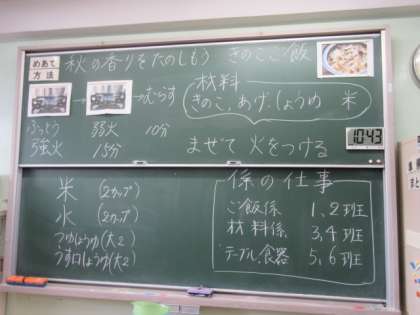 めあて 秋の香りをたのしもう きのこご飯
方法
材料
きのこ、あげ、しょうゆ 米
→ → むらす
ふっとう 弱火 10分
強火 15分
まぜて 火をつける
10:43
米 (2カップ)
水 (2カップ)
こいくちしょうゆ(大2)
うす口しょうゆ(大2)
係の仕事
ご飯係 1、2班
材料係 3、4班
テーブル、食器 5、6班